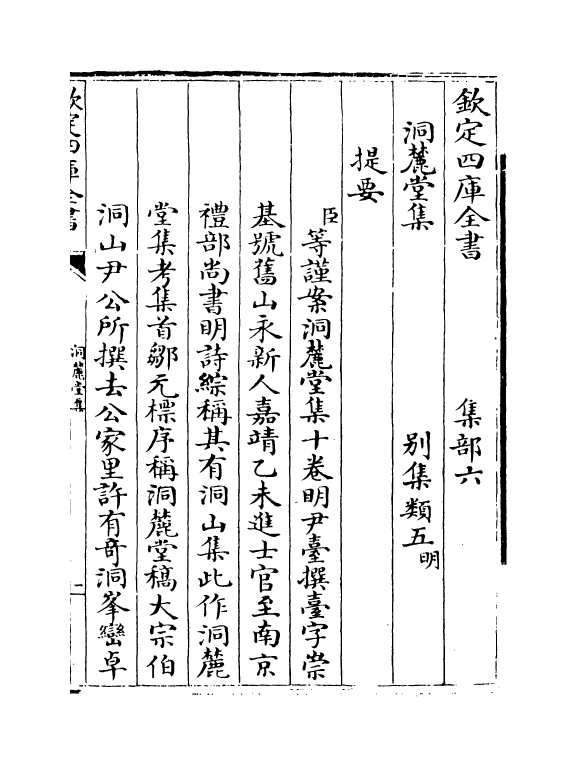 欽定四庫全書　集部六
洞麓堂集　別集類五明
提要
臣等謹案洞麓堂集十卷明尹臺撰臺字崇
基號舊山永新人嘉靖乙未進士官至南京
禮部尚書明詩綜稱其有洞山集此作洞麓
堂集考集首鄒元標序稱洞麓堂稿大宗伯
洞山尹公所撰去公家里許有奇洞峯巒卓
欽定四庫全書
洞麓堂集
一